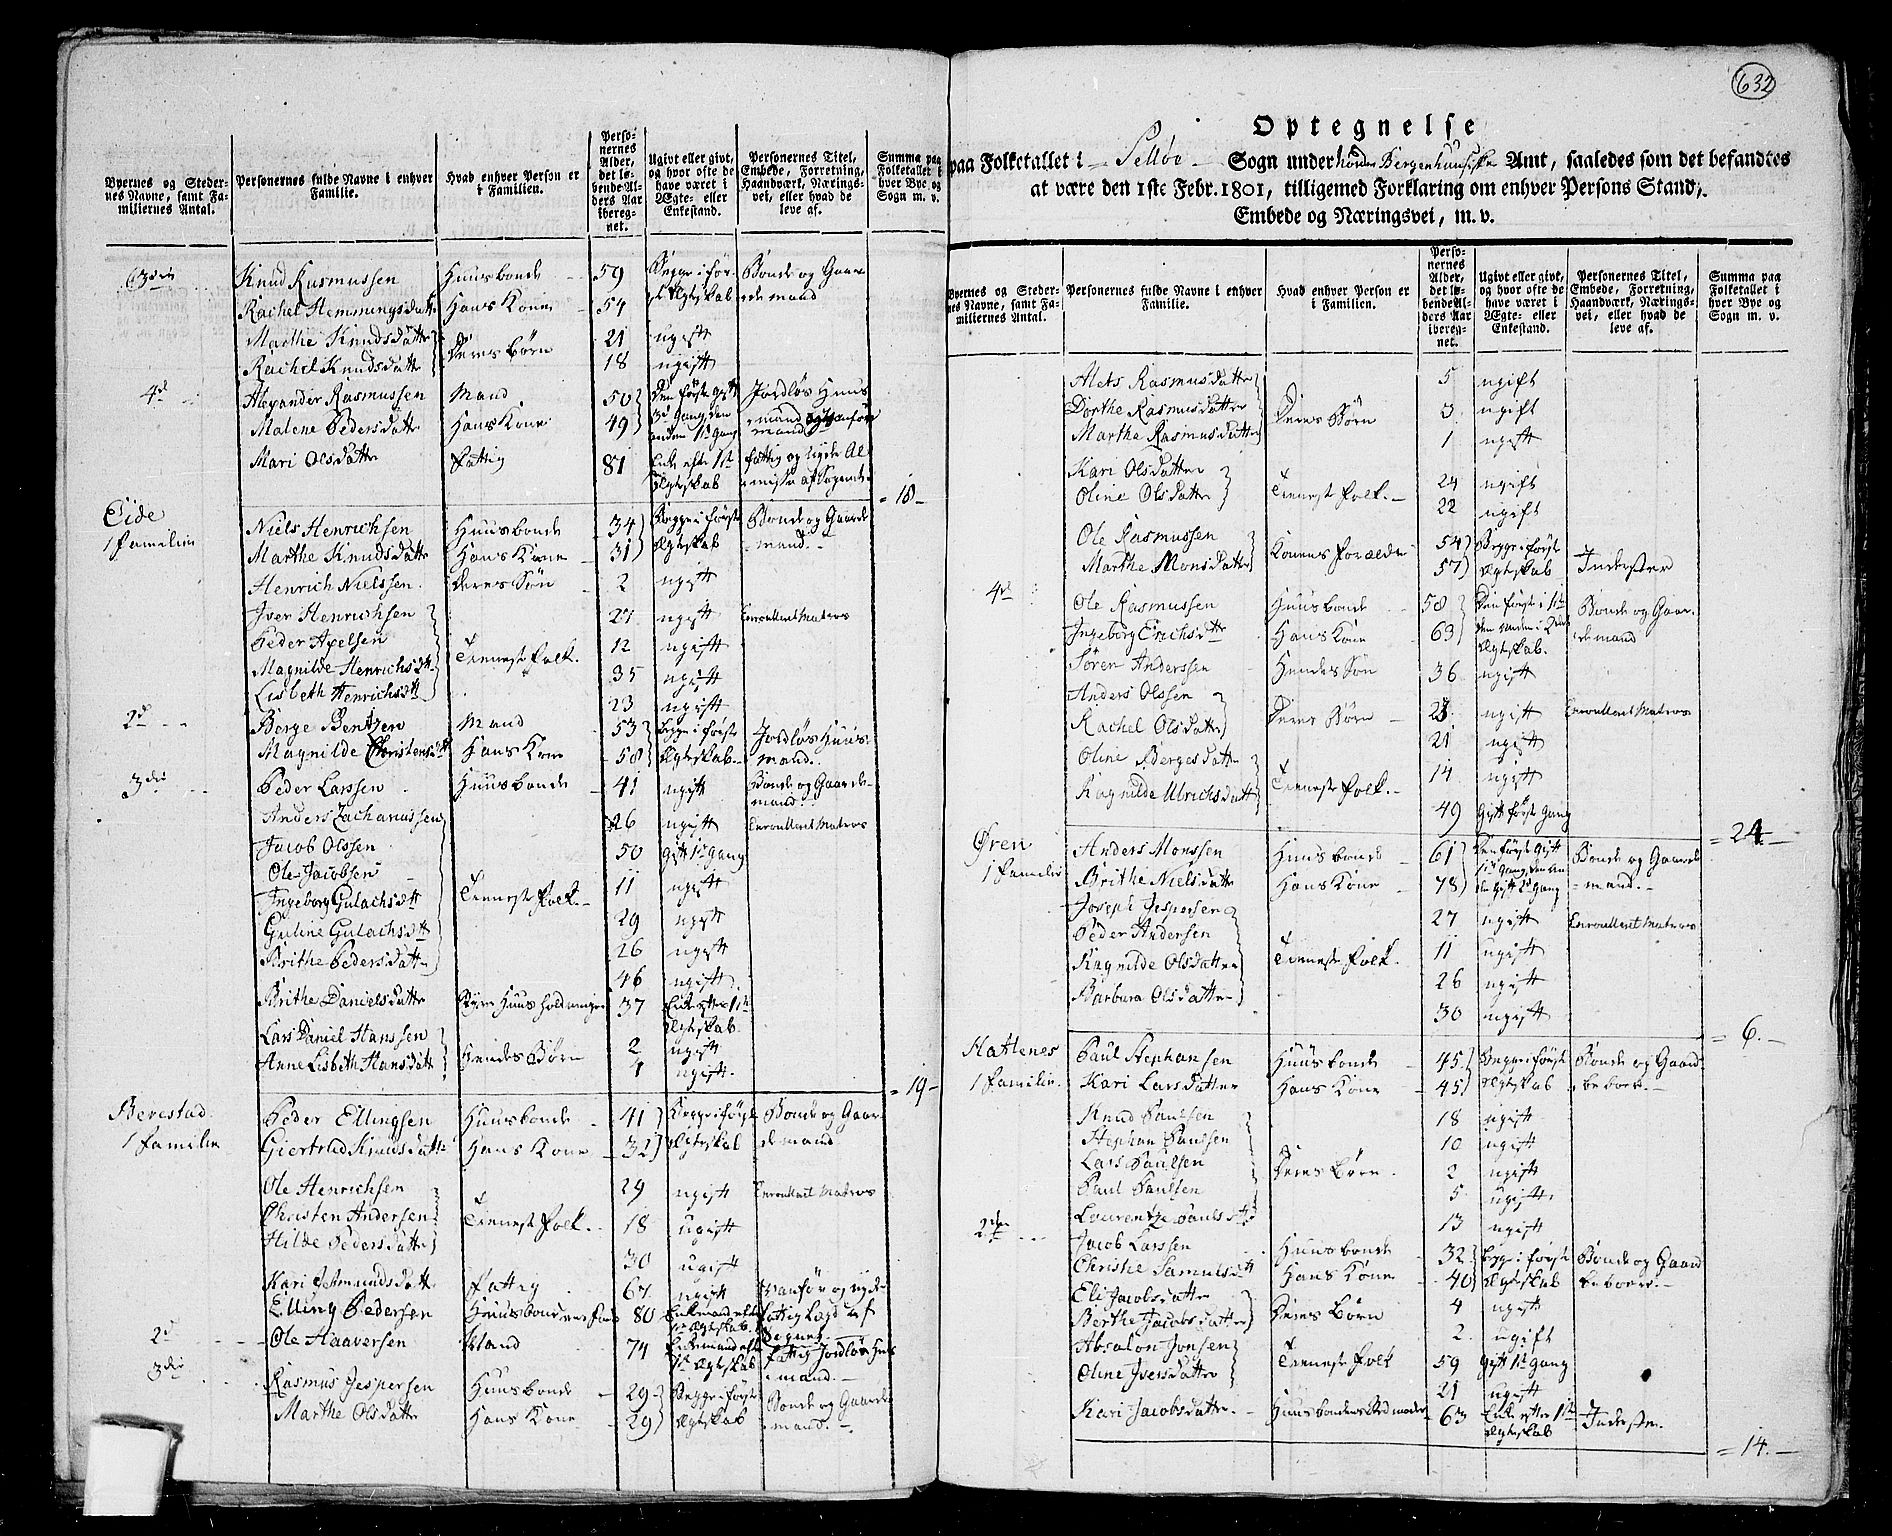 632
Optegnelse
paa Folketallet i Selløe Sogn under Bergenhuusiske Amt, saaledes som det befandtes
at være den 1ste Febr. 1801, tilligemed Forklaring om enhver Persons Stand,
Embede og Næringsvei, m. v.
Byernes og Steder-nes Navne, samt Fa-miliernes Antal. Personernes fulde Navne i enhver Familie. Hvad enhver Person er i Familien. Perso-nernes Alder, det lø-bende Al-ders Aar iberegnet. Ugivt eller givt, og hvor ofte de have været i Ægte- eller Enkestand. Personernes Titel, Embede, Forretning, Haandværk, Nærings-vei, eller hvad de leve af. Summa paa Folketallet i hver Bye og Sogn m. v.
Knud Rasmussen Huusbonde 59 Begge i før- Bonde og Gaar-
Rachel Hemmingsdatter Hans Kone 54 ste Ægteskab demand
Marthe Knudsdatter 21 ugift
Rachel Knudsdatter Deres børn 18 ugift
4de Alexander Rasmussen Mand 50 Den første gift Jordløs Huus
Malene Pedersdatter Hans Kone 49 3d Gang, den
anden 1st Gang
Mari Olsdatter Fattig 81 Enke efter 1st Fattig og nyde Al-
Ægteskab misse af Sognet
= 18 -
Eide Niels Henrichsen Huusbonde 34 Begge i første Bonde og Gaarde
1 Familie Marthe Knudsdatter Hans Kone 31 Ægteskab mand
Henrich Nielssen Deres Søn 2 ugift
Iver Henrichsen 27 ugift Enroulleret Matros
Peder Axelsen 12 ugift
Magnilde Henrichsdtt Tieneste folk 35 ugift
Lisbeth Henrichsdtt 23 ugift
2d Børge Bentzen Mand 53 Begge i første Jordløs Huus
Magnilde Christensdtt Hans Kone 58 Ægteskab mand
3die Peder Larssen Huusbonde 41 ugift Bonde og Gaarde-
mand
Anders Zachariassen 26 ugift Enroulleret Matros
Jacob Olssen 50 Gift 1st Gang
Ole Jacobsen 11 ugift
Ingeborg Gulachsdtt Tieneste Folk 29 ugift
Guline Gulachsdtt 26 ugift
Brithe Pedersdatter 46 ugift
Brithe Danielsdatter 37 Enke efter 1ste
Ægteskab
Lars Daniel Hanssen 2 ugift
Anne Lisbeth Hansdatt Hendes Børn 4 ugift
= 19 -
Berestad Peder Ellingsen Huusbonde 41 Begge i første Bonde og Gaar-
1 Familie Giertrud Knudsdatter Hans Kone 32 Ægteskab demand
Ole Henrichsen 29 ugift Enroulleret Matros
Christen Andersen Tieneste Folk 18 ugift
Hilde Pedersdatter 30 ugift
Kari Asmundsdatter Fattig 67 ugift
Elling Pedersen 80 Enkemand efter
1st Ægteskab
2d Ole Haaversen Mand 74 Enkemand efter Fattig Jordløs Huus
1st Ægteskab mand
3die Rasmus Jespersen Huusbonde 29 Begge i første Bonde og Gaarde
Marthe Olsdatter Hans Kone 29 Ægteskab mand
Byernes og Steder-nes Navne, samt Fa-miliernes Antal. Personernes fulde Navne i enhver Familie. Hvad enhver Person er i Familien. Perso-nernes Alder, det lø-bende Al-ders Aar iberegnet. Ugivt eller givt, og hvor ofte de have været i Ægte- eller Enkestand. Personernes Titel, Embede, Forretning, Haandværk, Nærings-vei, eller hvad de leve af. Summa paa Folketallet i hver Bye og Sogn m. v.
Alets Rasmusdatter 5 ugift
Dorthe Rasmusdatter Deres Børn 3 ugift
Marthe Rasmusdatter 1 ugift
Kari Olsdatter 24 ugift
Oline Olsdatter Tieneste Folk 22 ugift
Ole Rasmussen 54 Begge i første
Marthe Monsdatter Konens Forældre 57 Ægteskab Inderster
4de Ole Rasmussen Huusbonde 58 Den første i 1ste Bonde og Gaar-
Ingeborg Erichsdtt Hans Kone 63 den anden i demand
Ægteskab
Søren Anderssen Hendes Søn 36 ugift
Anders Olssen ugift Enroulleret Matros
Rachel Olsdatter Deres Børn 21 ugift
Oline Børgesdatter 14 ugift
Ragnilde Ulrichsdatt Tieneste Folk 49 Gift første Gang
= 24 -
Øren Anders Monssen Huusbonde 61 Den første Gift Bonde og Gaarde
1 Familie Brithe Nielsdatter Hans Kone 78 1st Gang, den an- mand
den Gift 2d Gang
Joseph Jespersen 27 ugift Enroulleret Matros
Peder Andersen 11 ugift
Ragnilde Olsdatter Tieneste Folk 26 ugift
Barbara Olsdatter 30 ugift
= 6. -
Hattenes Paul Stephansen Huusbonde 45 Begge i første Bonde og Gaard
1 Familie Kari Larsdatter Hans Kone 45 Ægteskab beboer
Knud Paulsen 18 ugift
Stephan Paulsen 10 ugift
Lars Paulsen Deres Børn 2 ugift
Paul Paulsen 5 ugift
Laurentze Paulsdtt 13 ugift
Jacob Larssen Huusbonde 32 Begge i første Bonde og Gaard
Christie Samuelsdtt Hans Kone 40 Ægteskab beboer
Eli Jacobsdatter 4 ugift
Berthe Jacobsdatter Deres Børn 2 ugift
Absalon Jonsen 59 Gift 1st Gang
Oline Iversdatter Tieneste Folk 21 ugift
Kari Jacobsdatter Huusbondens Stedmoder 63 Enke efter 1ste Inderster
Ægteskab
= 14. -